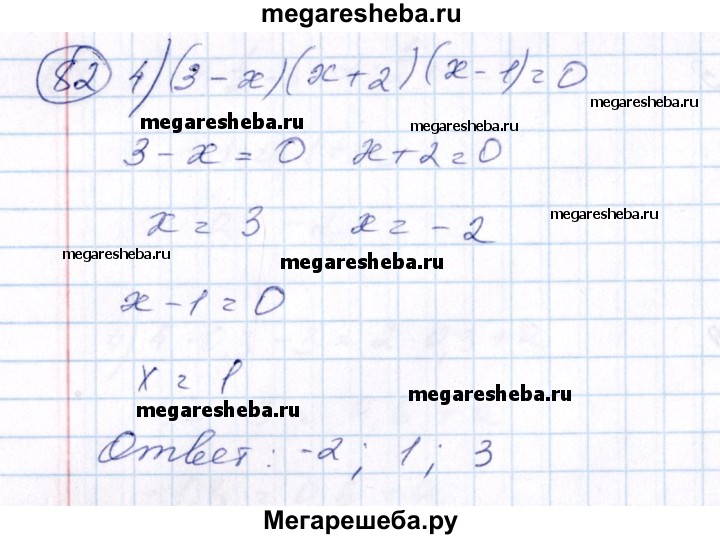 megaresheba.ru
82 4) (3 - x)(x + 2)(x - 1) = 0
megaresheba.ru
megaresheba.ru megaresheba.ru
3 - x = 0 x + 2 = 0
x = 3 x = - 2
megaresheba.ru
megaresheba.ru megaresheba.ru
x - 1 = 0
x = 1
megaresheba.ru
megaresheba.ru
Ответ: -2; 1; 3
Мегарешеба.ру